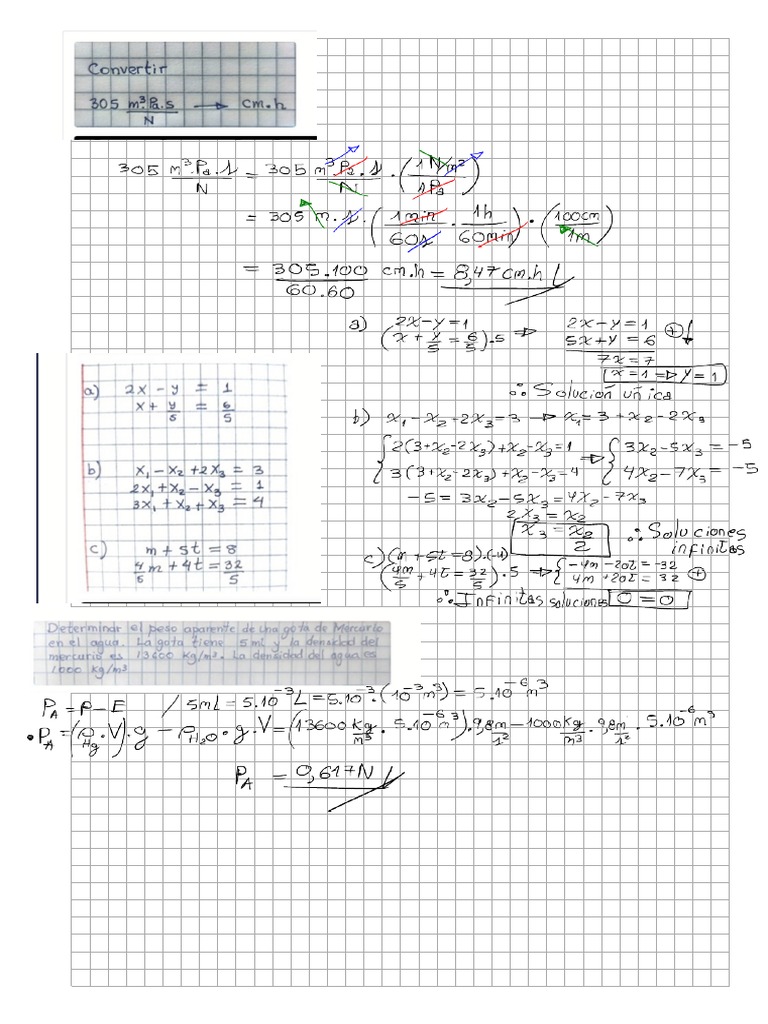 Convertir
305 m³.Pa.s/N → cm.h
305 m³.Pa.s/N = 305 m³.Pa.s/N . (1N/m²/1Pa)
= 305 m.s.(1min/60s . 1h/60min).(100cm/1m)
= 305.100/60.60 cm.h = 8,47cm.h
a) 2x-y=1
(x+y/5=6/5).5 ⇒ 2x-y=1
5x+y=6 (+)↓
7x=7
x=1⇒y=1
∴ Solución única
a) 2x - y = 1
x + y/5 = 6/5
b) x₁ - x₂ + 2x₃ = 3
2x₁ + x₂ - x₃ = 1
3x₁ + x₂ + x₃ = 4
c) m + 5t = 8
4/5 m + 4t = 32/5
b) x₁ - x₂ - 2x₃ = 3 → x₁ = 3 + x₂ - 2x₃
{2(3+x₂-2x₃)+x₂-x₃=1 ⇒ {3x₂-5x₃ = -5
3(3+x₂-2x₃)+x₂-x₃=4 4x₂-7x₃ = -5
-5 = 3x₂-5x₃ = 4x₂-7x₃
2x₃ = x₂
x₃ = x₂/2 ∴ Soluciones infinitas
c) (m + 5t = 8).(-4)
(4m/5 + 4t = 32/5).5 ⇒ {-4m-20t = -32
4m+20t = 32 (+)
∴ Infinitas soluciones 0 = 0
Determinar el peso aparente de una gota de Mercurio
en el agua. La gota tiene 5ml y la densidad del
mercurio es 13600 Kg/m³. La densidad del agua es
1000 Kg/m³
P_A = P - E / 5mL = 5.10⁻³L = 5.10⁻³.(10⁻³m³) = 5.10⁻⁶m³
•P_A = (ρ_Hg.V).g - ρ_H₂O.g.V = (13600 Kg/m³ . 5.10⁻⁶m³).9,8m/s² - 1000Kg/m³ . 9,8m/s² . 5.10⁻⁶m³
P_A = 0,617N